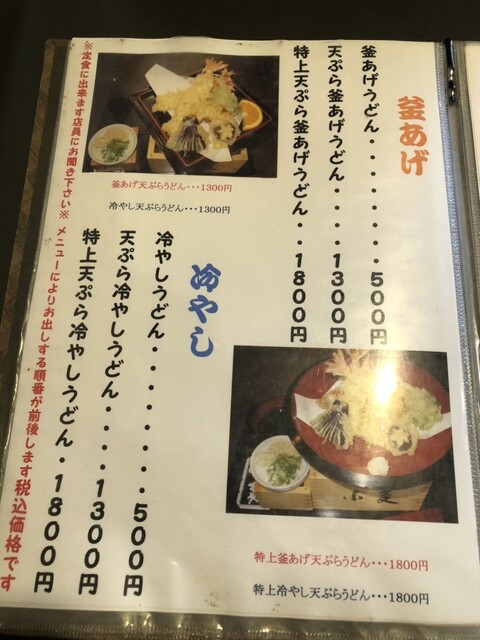 釜あげ
釜あげうどん・・・・・・・・500円
天ぷら釜あげうどん・・・・・1300円
特上天ぷら釜あげうどん・・1800円
釜あげ天ぷらうどん・・・1300円
冷やし天ぷらうどん・・・1300円
冷やし
冷やしうどん・・・・・・・・500円
天ぷら冷やしうどん・・・・1300円
特上天ぷら冷やしうどん・1800円
特上釜あげ天ぷらうどん・・・1800円
特上冷やし天ぷらうどん・・・1800円
※定食に出来ます店員にお聞き下さい※ メニューによりお出しする順番が前後します税込価格です